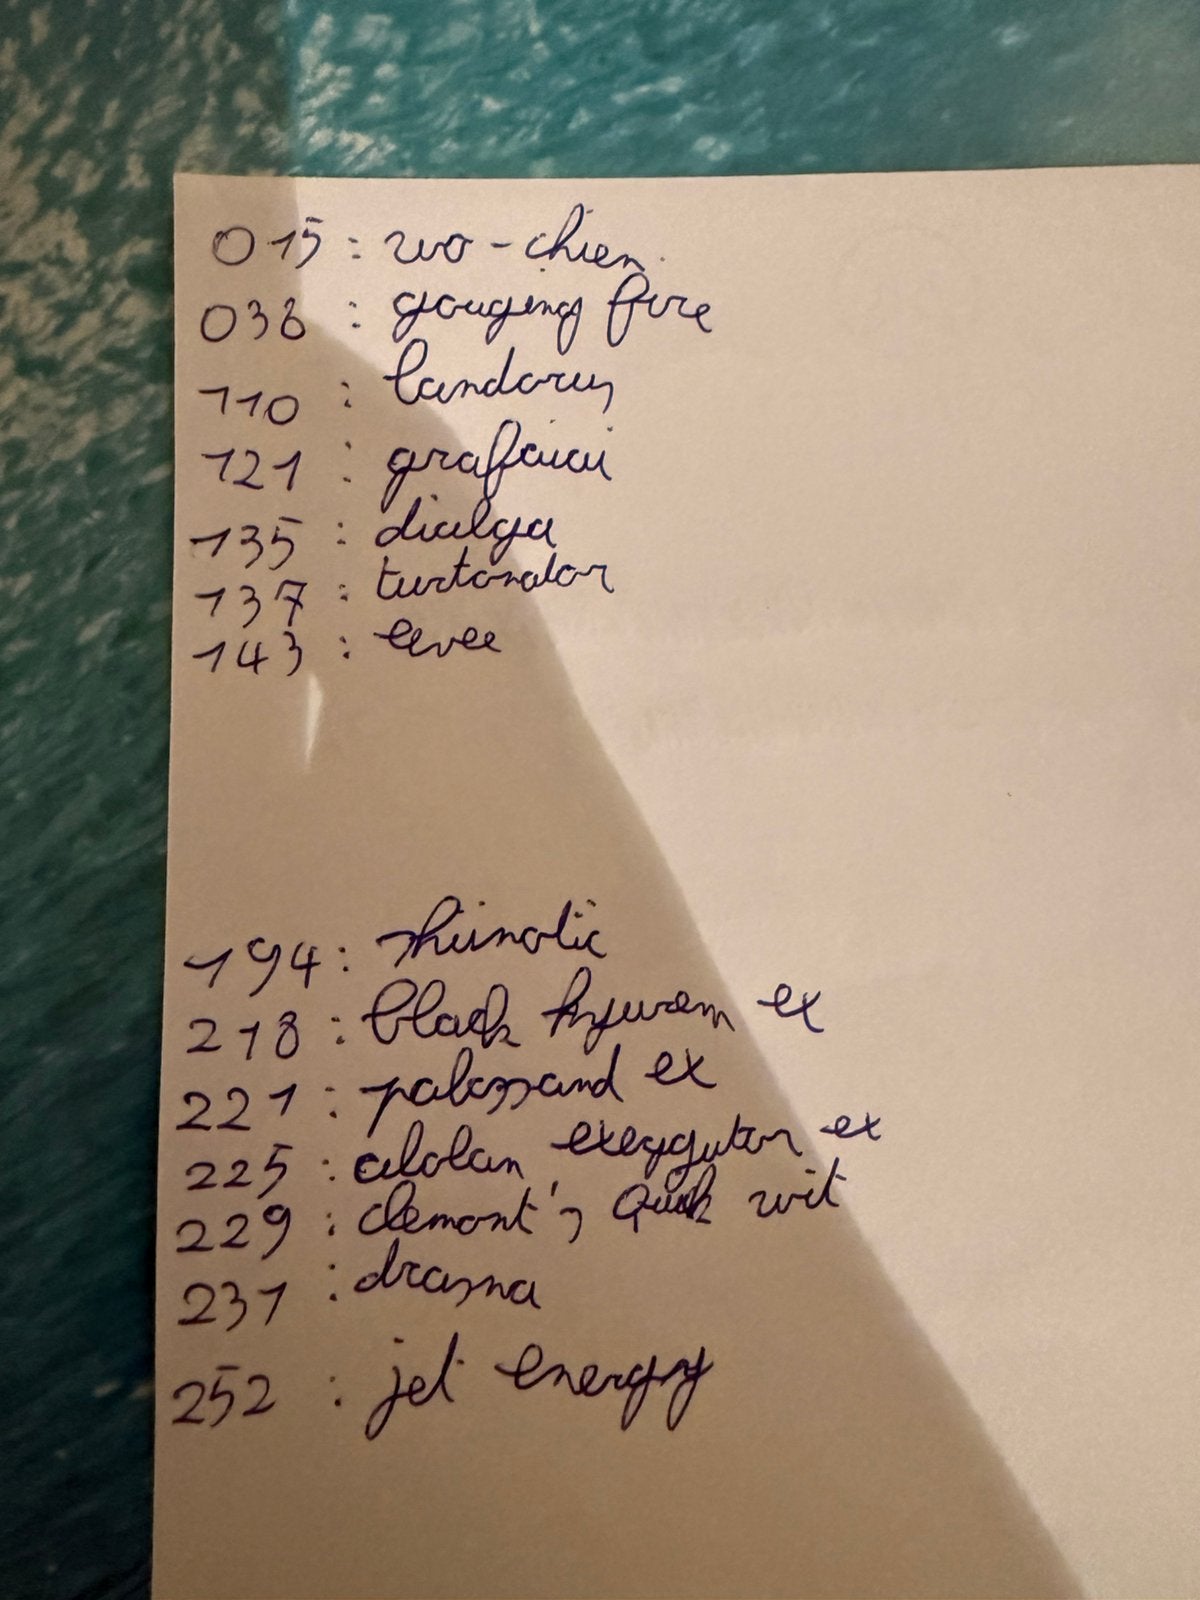 015 : wo-chien
038 : gouging fire
110 : landorus
121 : grafaiai
135 : dialga
137 : turtonator
143 : eevee
194 : shiinotic
218 : black kyurem ex
221 : palossand ex
225 : alolan exeggutor ex
229 : clemont's quick wit
231 : drasna
252 : jet energy